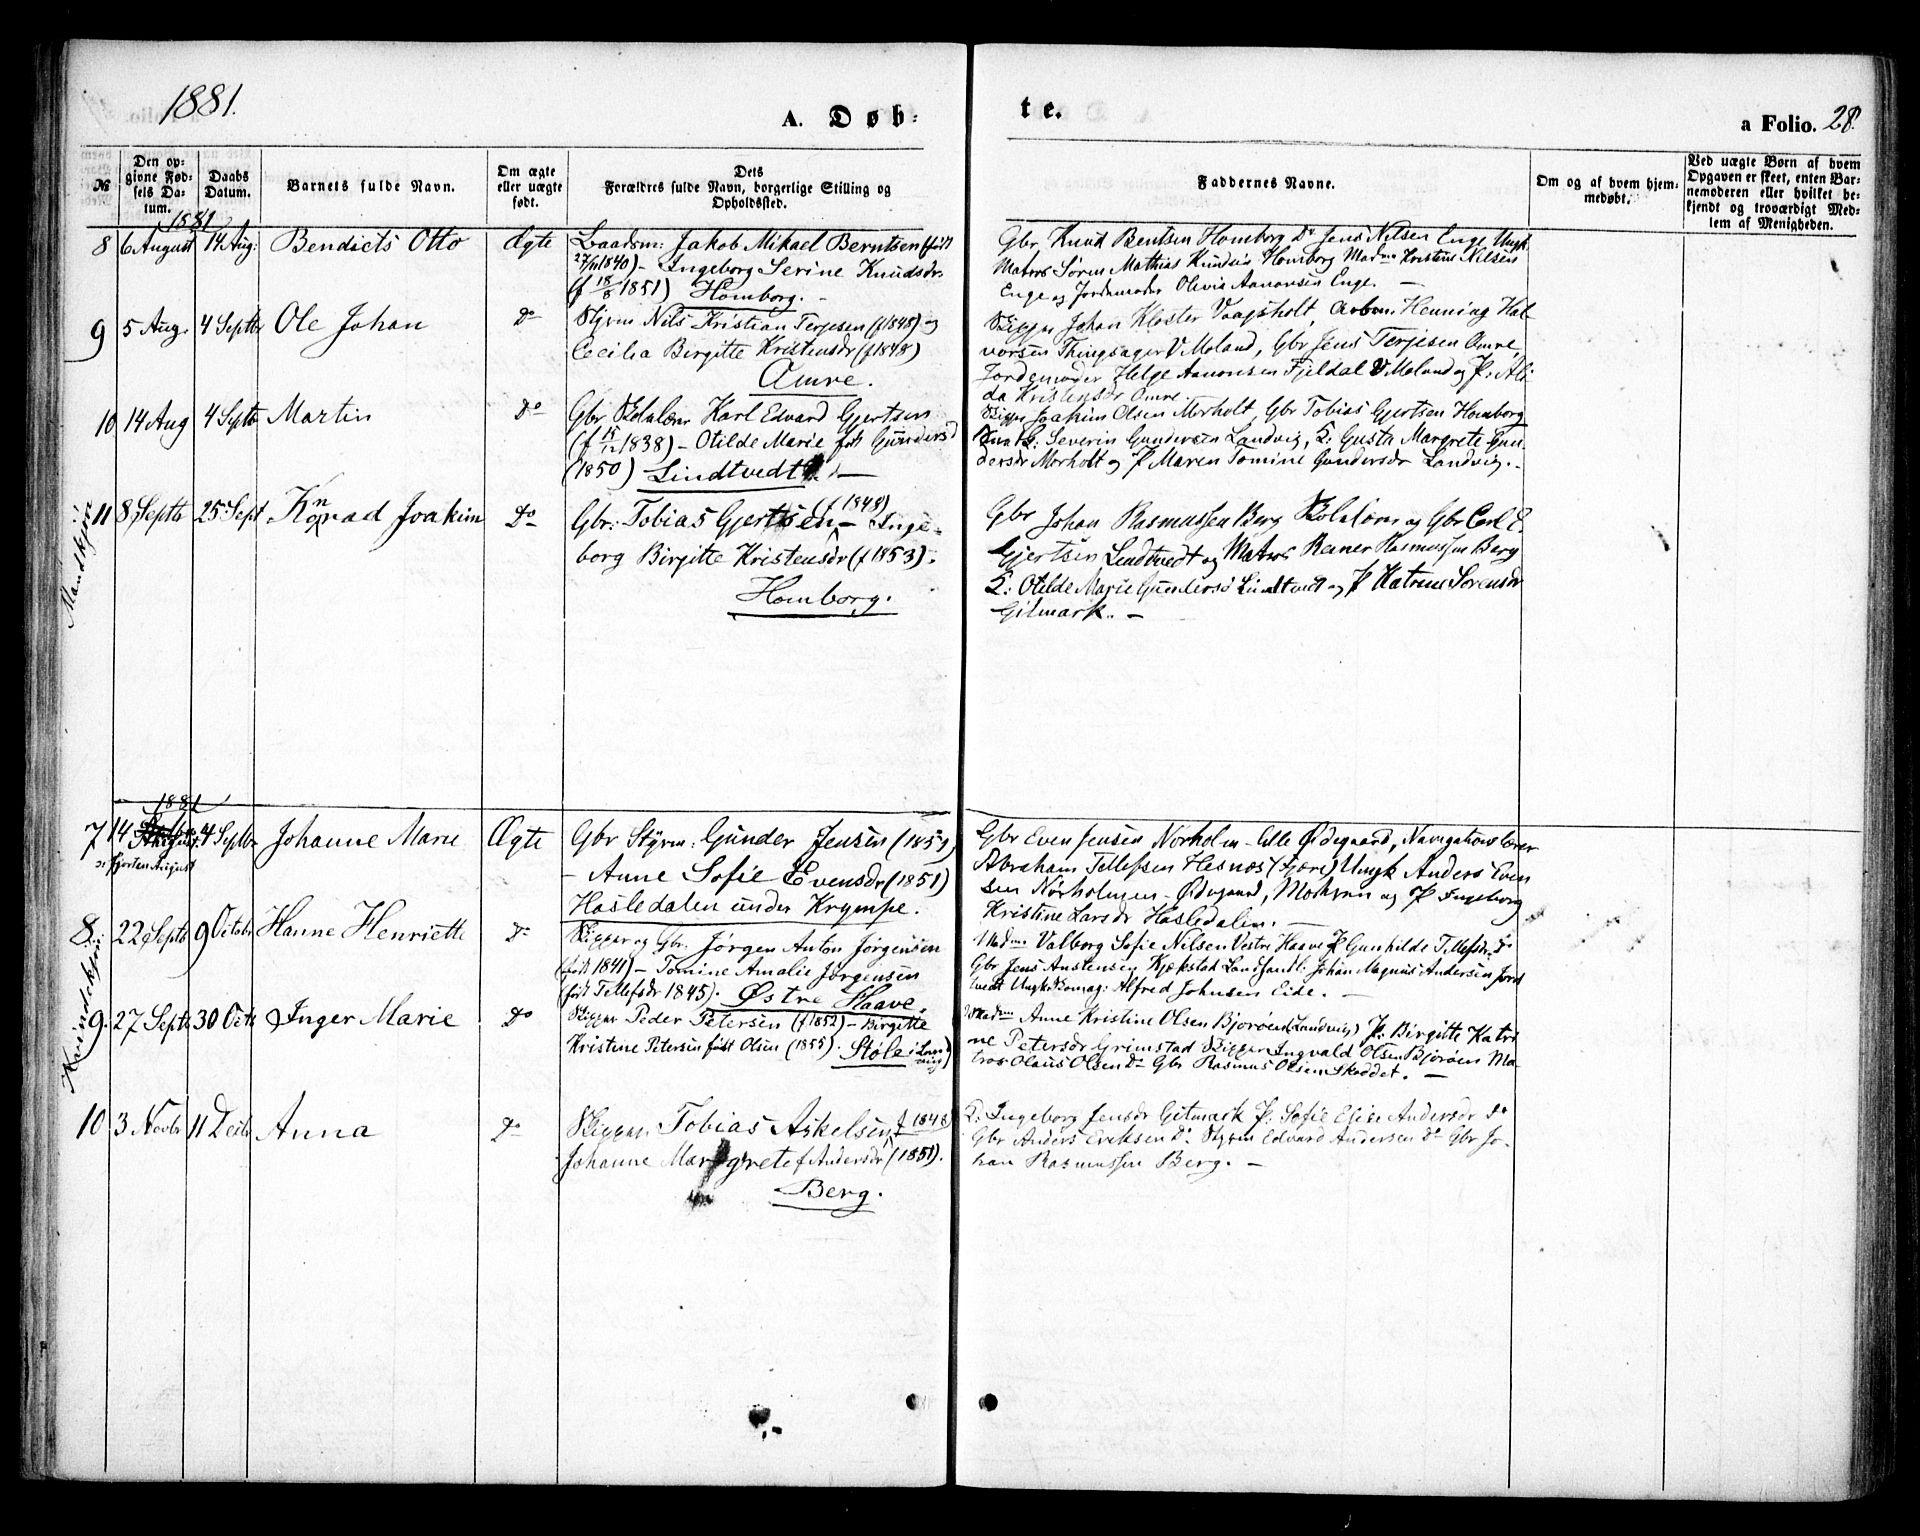 1881.
A. Døb-
te.
a Folio. 28.
№
Den op-
givne Fød-
sels Da-
tum.
Daabs
Datum.
Barnets fulde Navn.
Om ægte
eller uægte
født.
Dets
Forældres fulde Navn, borgerlige Stilling og
Opholdssted.
Faddernes Navne.
Om og af hvem hjem-
medøbt.
Ved uægte Børn af hvem
Opgaven er skeet, enten Bar-
nemoderen eller hvilket be-
kjendt og troværdigt Med-
lem af Menigheden.
Mandkjøn
1881
8 6 August 14 Aug: Bendicts Otto Ægte
Baadsm: Jakob Mikael Berntsen (født
27/11 1840) - Ingeborg Serine Knudsdr
(f 18/8 1851) Homborg. -
Gbr Knud Bentsen Homborg Do Jens Nilsen Enge Ungk
Matros Søren Mathias Knudsen Homborg Madme Kristine Nilsen
Enge og Jordemoder Olevia Aanonsen Enge. -
9 5 Aug. 4 Septbr Ole Johan Do
Styrm Nils Kristian Terjesen (f 1848) og
Cecilia Birgitte Kristensdr (f 1848)
Omre.
Skipper Johan Kloster Vaagsholt, Arbm. Henning Hal-
vorsen Thingsager V Moland, Gbr Jens Terjesen Omre,
Jordemoder Helge Aanonsen Fjeldal V Moland og P: Ali-
da Kristensdr Omre.
10 14 Aug 4 Septb Martin Do
Gbr Skolelærer Karl Edvard Gjertsen
(f 15/12 1838) - Otilde Marie født Gundersd
(1850) Lindtvedt. -
Skipper Joakim Olsen Morholt, Gbr Tobias Gjertsen Homborg
Severin Gundersen Landvig, K: Gusta Margrete Gun-
dersdr Morholt og P Maren Tomine Gundersdr Landvig. -
11 8 Septb 25 Sept Konrad Joakim Do
Gbr: Tobias Gjertsen (f 1848) - Inge-
borg Birgitte Kristensdr (f 1853).
Homborg.
Gbr Johan Rasmussen Berg Skolelærer og Gbr Carl E
Gjertsen Lindtvedt og Matros Reiner Rasmussen Berg
K: Otilde Marie Gundersd Lindtvedt og P Katrine Sørensdr
Gitmark. -
Kvindekjøn
1881
7 14 August 4 Septbr Johanne Marie Ægte
ɔ: fjorten August
Gbr Styrm: Gunder Jensen (1859)
- Anne Sofie Evensdr (1851)
Hasledalen under Krympe.
Gbr Even Jensen Nørholm - Lille Ødegaard, Navigationslærer
Abraham Tellefsen Hesnes (Fjære) Ungk Anders Even
sen Nørholmen - Ødegaard, Mohven og P Ingeborg
Kristine Larsdr Hasledalen. -
8. 22 Septb 9 Octobr Hanne Henriette Do
Skipper og Gbr. Jørgen Anton Jørgensen
(født 1841) - Tomine Amalie Jørgensen
(født Tellefsdr 1845). Østre Haave.
Madme Valborg Sofie Nilsen Vestre Haave P Gunhilde Tellefsdr Do
Gbr Jens Austensen Kjekstad Landhandl: Johan Magnus Andersen Jord
tvedt Ungk Skomag: Alfred Johnsen Eide. -
9. 27 Septb 30 Octb Inger Marie Do
Skipper Peder Petersen (f 1852) - Birgitte
Kristine Petersen født Olsen (1855). Støle i (Land
vig)
Madme Anne Kristine Olsen Bjorøen (Landvig) P: Birgitte Katri
ne Petersdr Grimstad Skipper Ingvald Olsen Bjorøen Ma-
tros Olaus Olsen Do Gbr Rasmus Olsen Skaddet. -
10 3 Novbr 11 Decbr Anna Do
Skipper Tobias Askelsen f 1848
Johanne Margrete f Andersdr (1851).
Berg.
K: Ingeborg Jensdr Gitmark P: Sofie Elise Andersdr Do
Gbr Anders Eriksen Do Styrm Edvard Andersen Do Gbr Jo-
han Rasmussen Berg. -